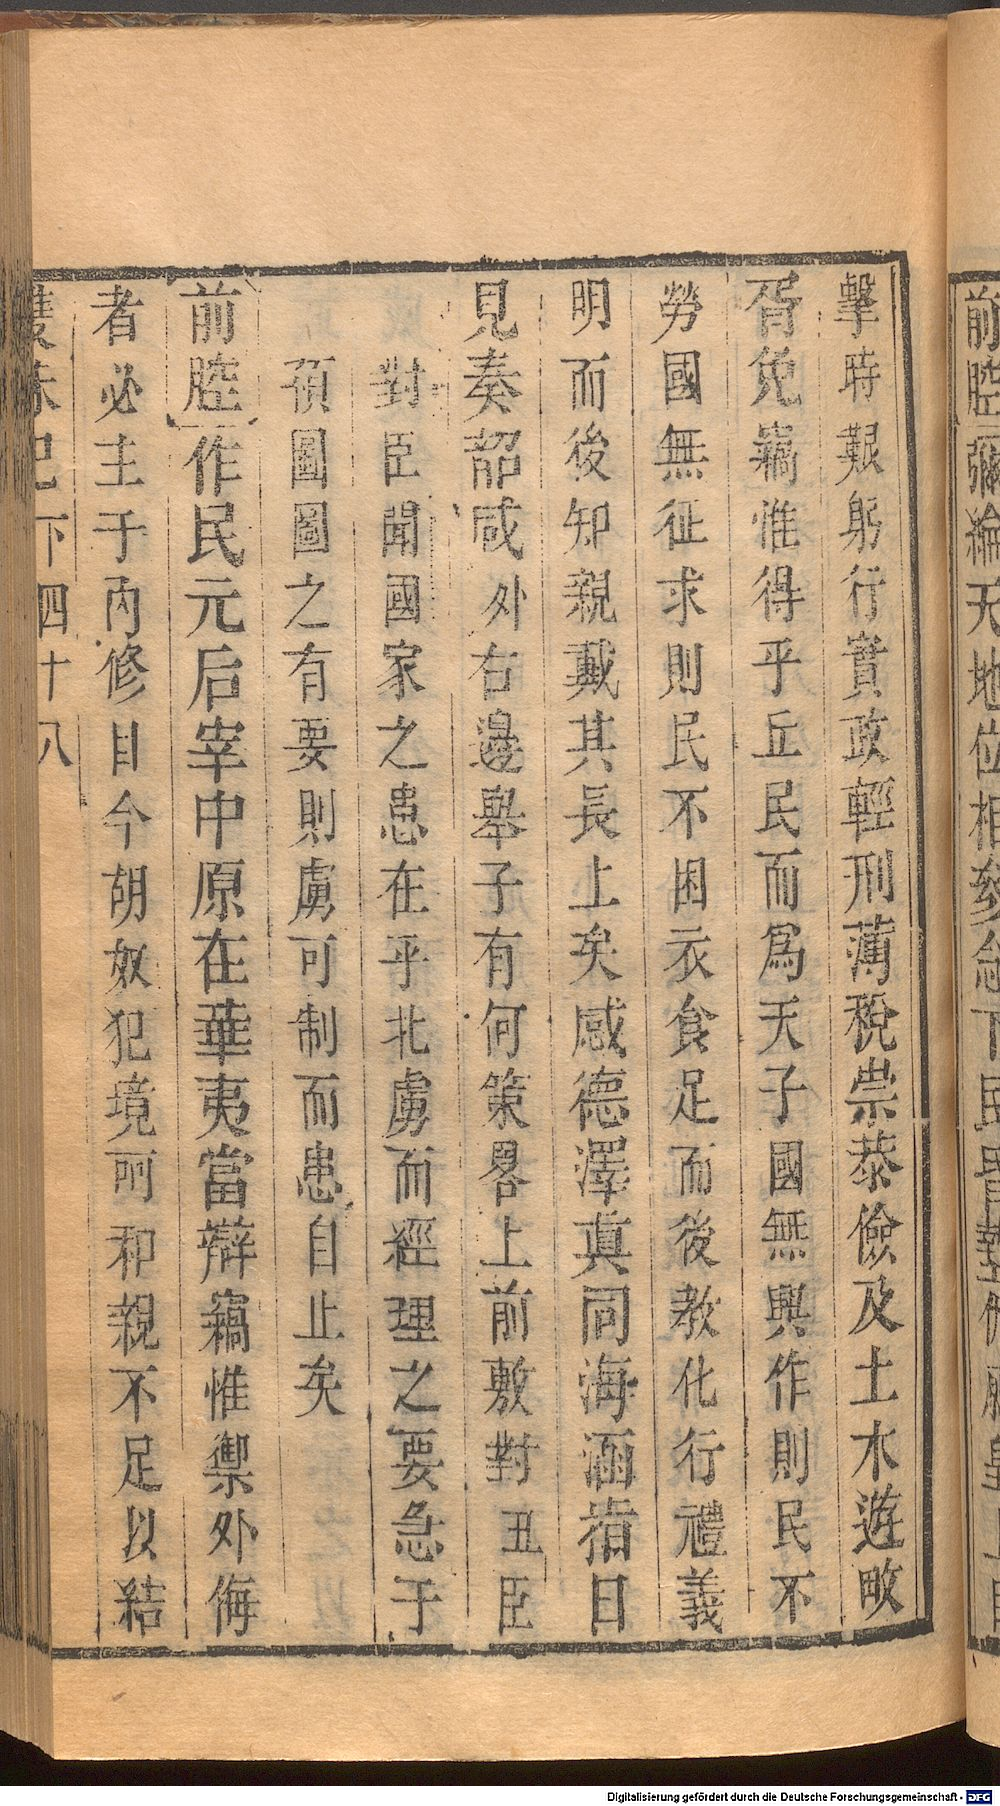 前腔彌綸天地位相參念下民
擊時艱躬行實政輕刑薄稅崇恭儉及土木遊畋
胥免竊惟得乎丘民而爲天子國無興作則民不
勞國無征求則民不困衣食足而後教化行禮義
明而後知親戴其長上矣感德澤眞同海涵指日
見奏韶咸外右邊舉子有何策畧上前敷對丑臣
對臣聞國家之患在乎北虜而經理之要急于
預圖圖之有要則虜可制而患自止矣
前腔作民元后宰中原在華夷當辯竊惟禦外侮
者必主于內修目今胡奴犯境呵和親不足以結
雙珠記下四十八
Digitalisierung gefördert durch die Deutsche Forschungsgemeinschaft - DFG